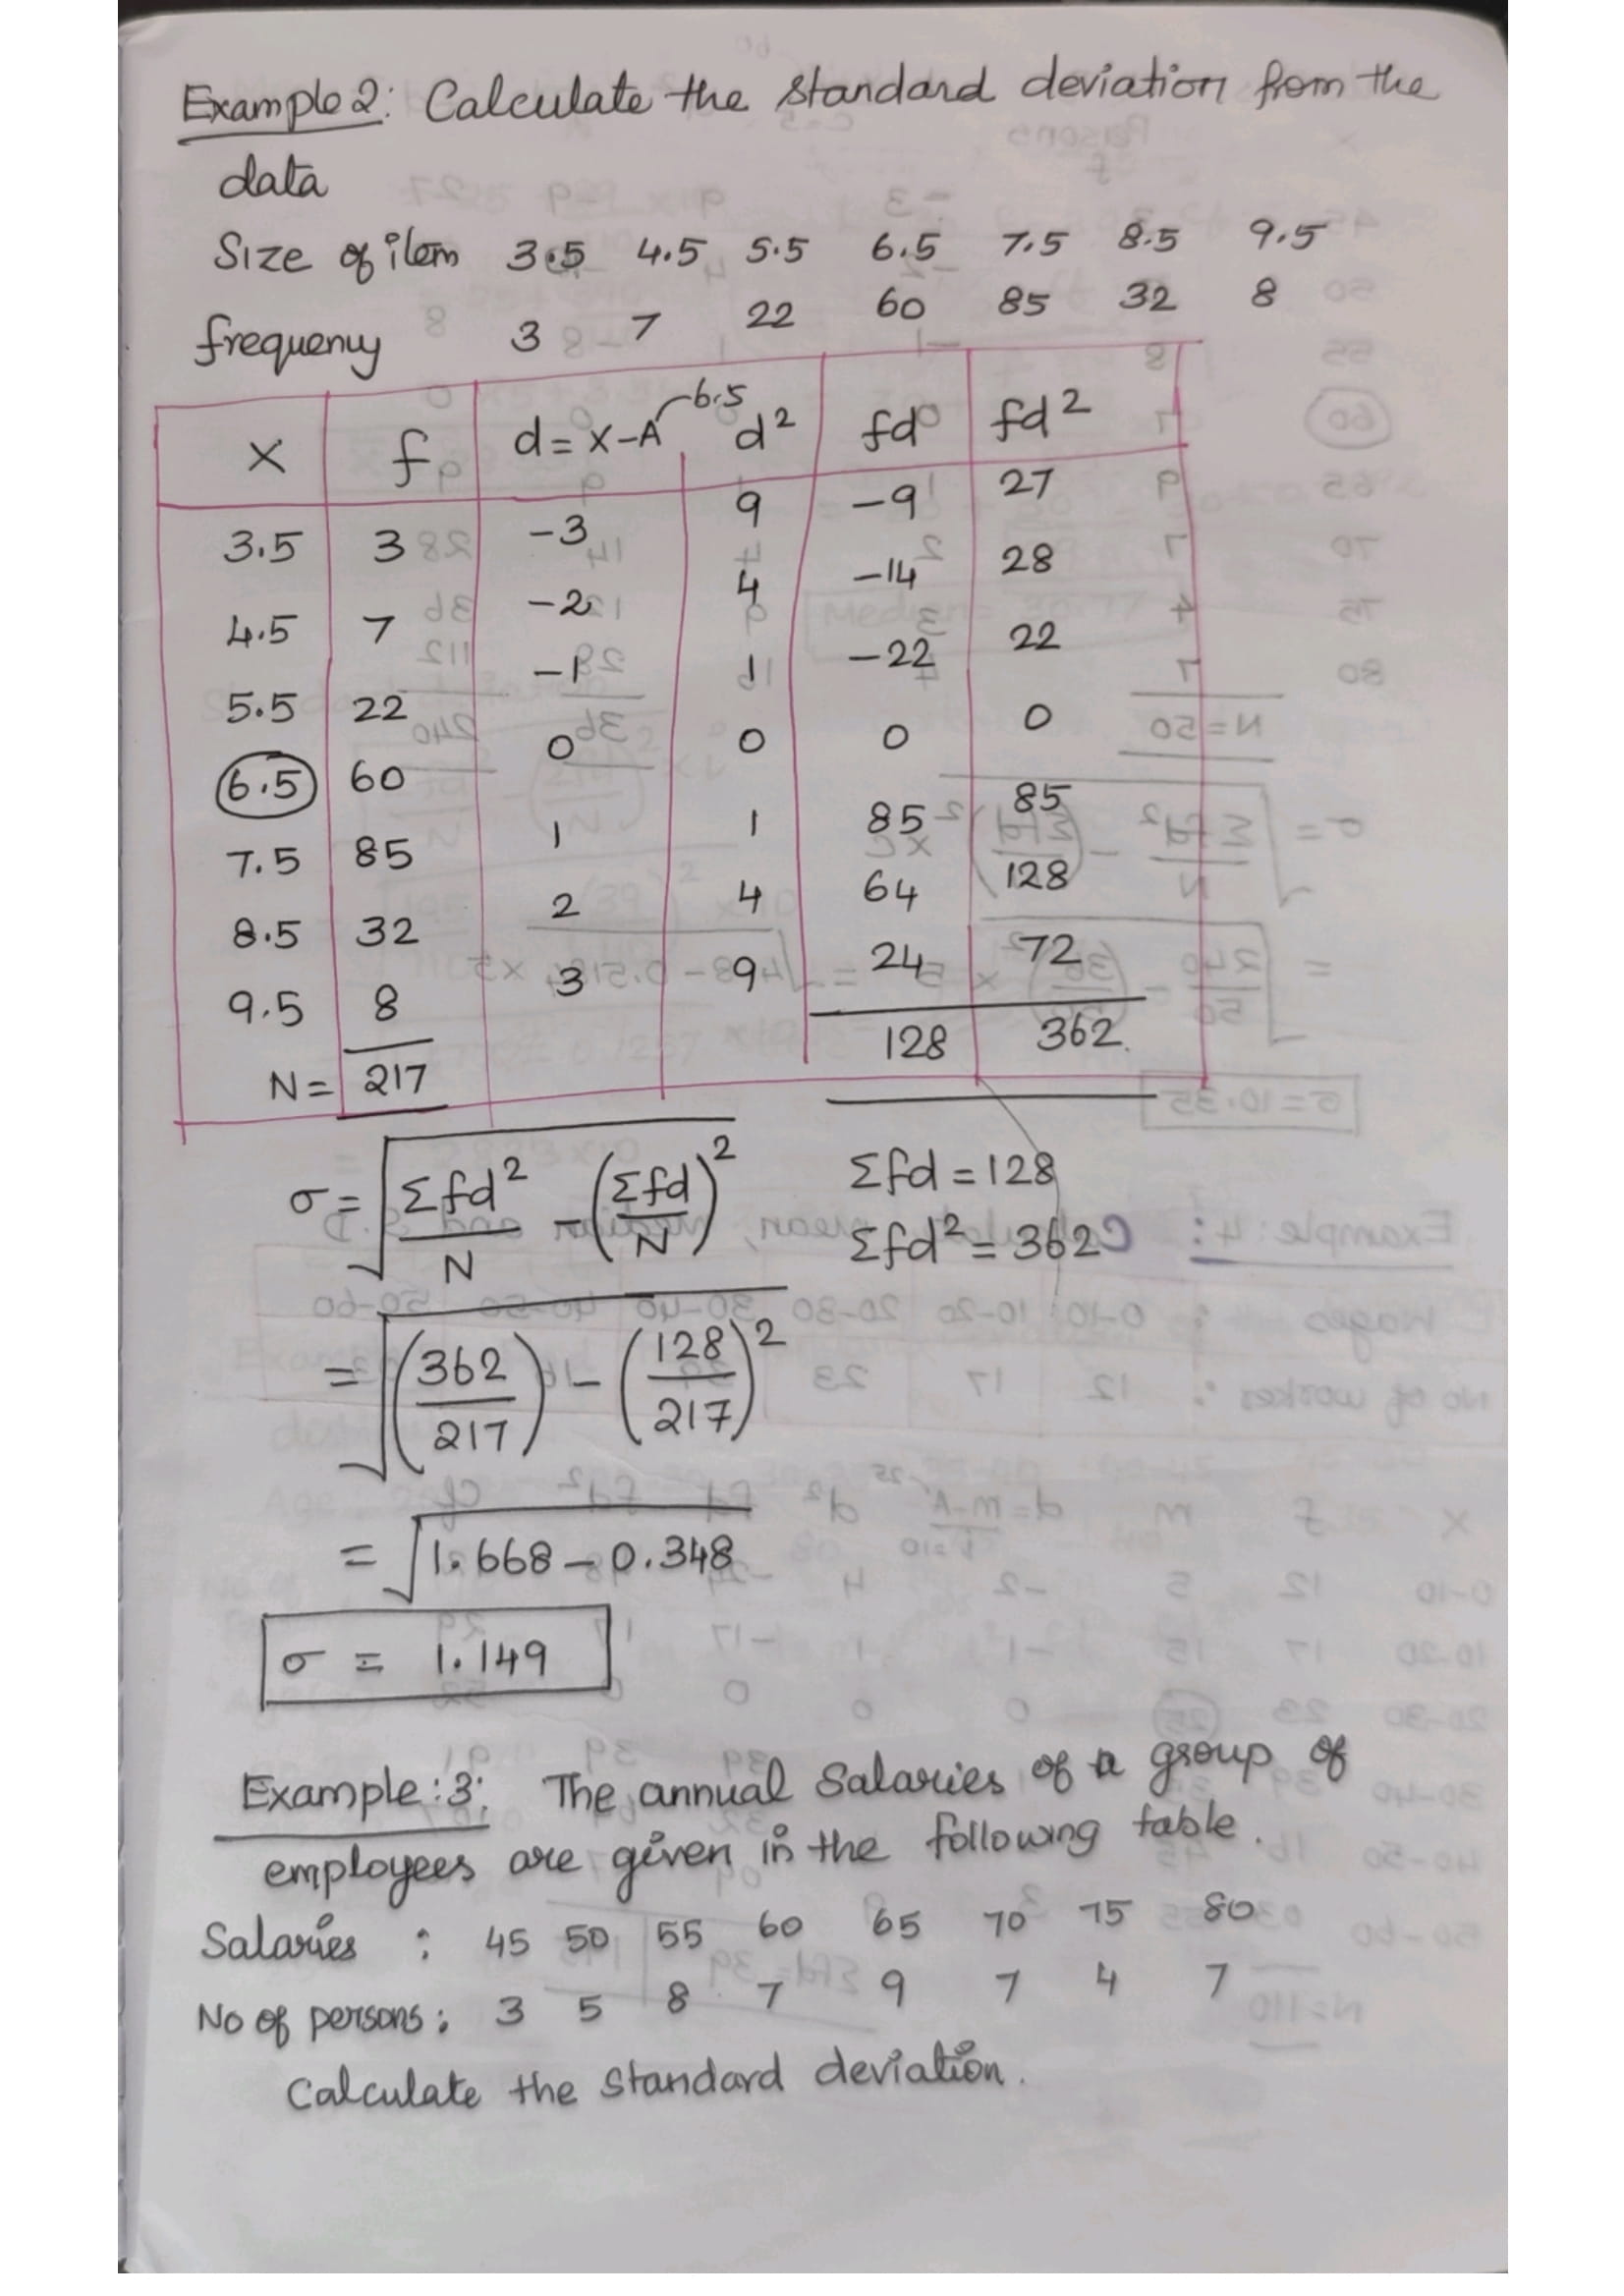 Example 2: Calculate the standard deviation from the
data
Size of item 3.5 4.5 5.5 6.5 7.5 8.5 9.5
frequency 3 7 22 60 85 32 8
x f d = x-A 6.5 d² fd fd²
3.5 3 -3 9 -9 27
4.5 7 -2 4 -14 28
5.5 22 -1 1 -22 22
6.5 60 0 0 0 0
7.5 85 1 1 85 85
8.5 32 2 4 64 128
9.5 8 3 9 24 72
N = 217 128 362
σ = √(Σfd²/N - (Σfd/N)²)
Σfd = 128
Σfd² = 362
= √((362/217) - (128/217)²)
= √(1.668 - 0.348)
σ = 1.149
Example: 3: The annual Salaries of a group of
employees are given in the following table.
Salaries : 45 50 55 60 65 70 75 80
No of persons: 3 5 8 7 9 7 4 7
Calculate the standard deviation.